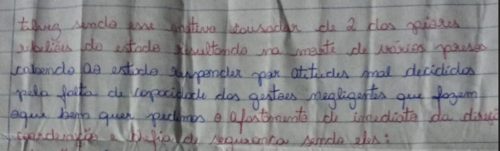 talvez sendo esse motivo causador de 2 das piores
rebeliões do estado resultando na morte de vários presos
cabendo ao estado responder por atitudes mal decididas
pela falta de capacidade dos gestoes negligentes que fazem
aqui bem quer pedimos o afastamento de imediato da direç
cordenação e chefia de segurança sendo eles: